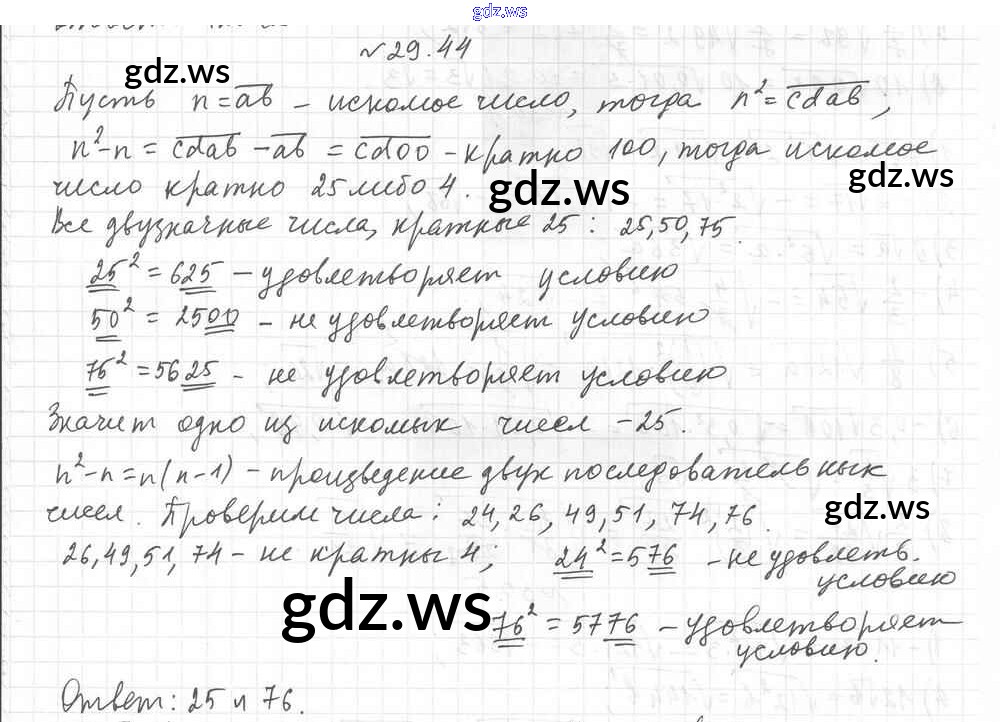 gdz.ws
№29.44
gdz.ws
Пусть n=ab – искомое число, тогда n²=cdab,
n²-n = cdab – ab = cd00 – кратно 100, тогда искомое
gdz.ws
число кратно 25 либо 4.
gdz.ws
Все двузначные числа, кратные 25: 25, 50, 75.
25² = 625 – удовлетворяет условию
50² = 2500 – не удовлетворяет условию
75² = 5625 – не удовлетворяет условию
Значит одно из искомых чисел – 25.
n²-n = n(n-1) – произведение двух последовательных
чисел. Проверим числа: 24, 26, 49, 51, 74, 76.
gdz.ws
26, 49, 51, 74 – не кратны 4; 24² = 576 – не удовлетв.
условию
gdz.ws
76² = 5776 – удовлетворяет
условию.
Ответ: 25 и 76.